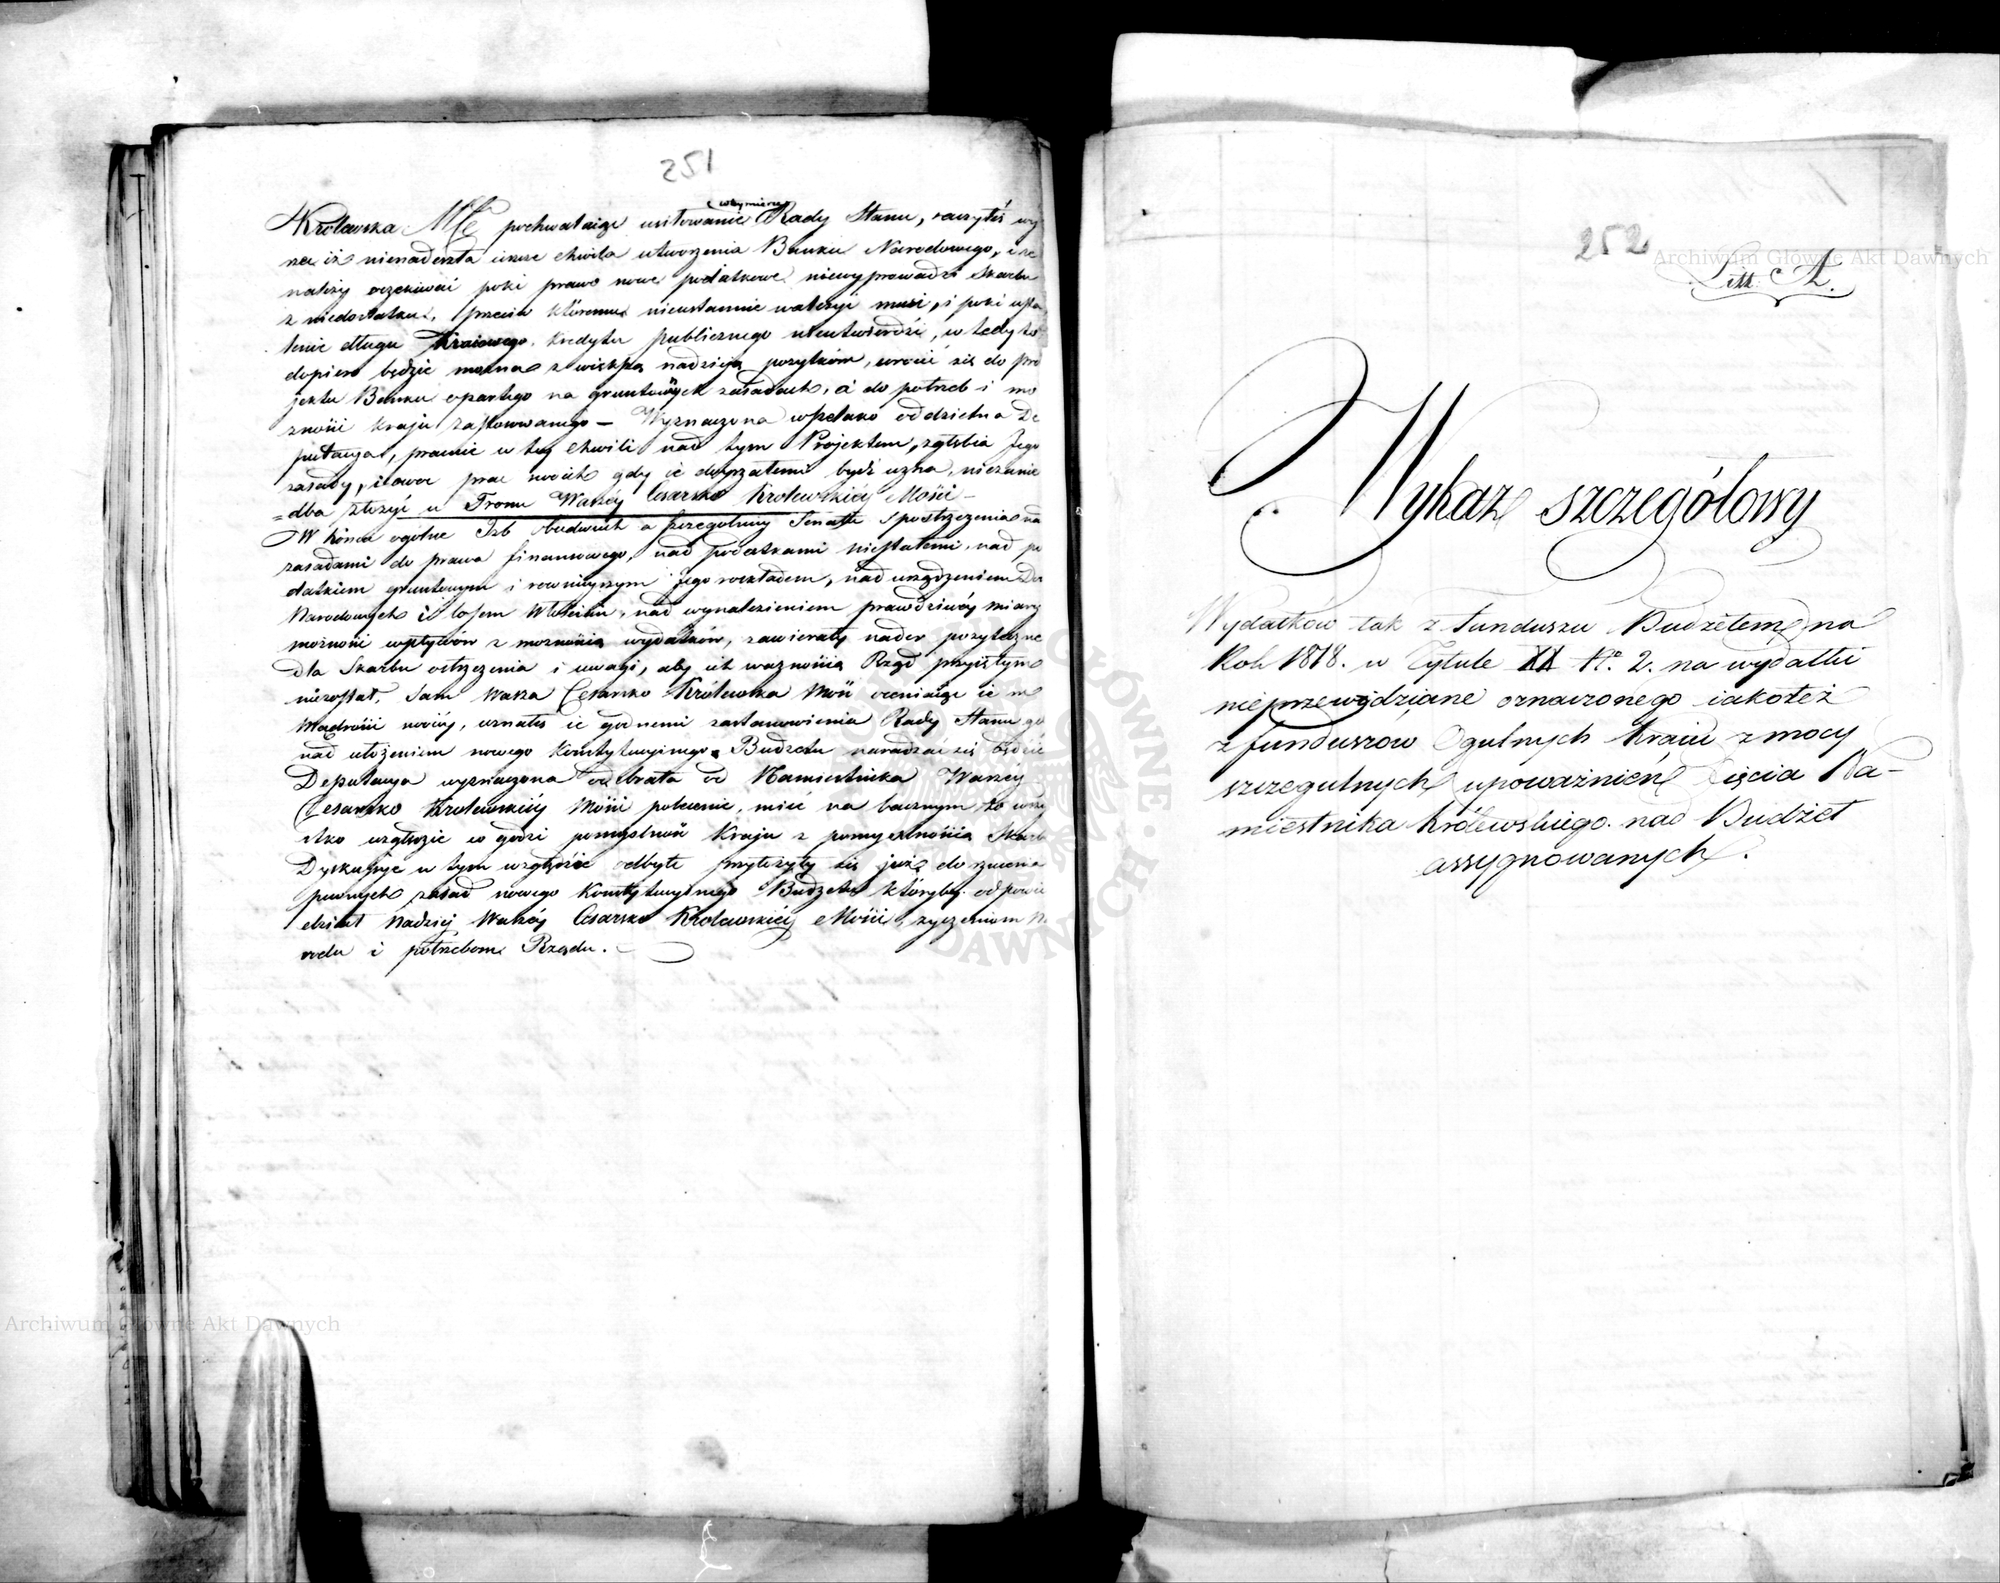 251
w tey mierze
Królewska Mść pochwalaiąc usiłowanie Rady Stanu, raczyłeś wy
rzec iż nienadeszła ieszcze chwila utworzenia Banku Narodowego, i że
należy oczekiwać poki prawo nowe podatkowe niewyprowadzi Skarbu
z niedostatku, przeciw któremu nieustannie walczyć musi, i poki usta
lenie długu Kraiowego kredytu publicznego nieutwierdzi, w tedy to
dopiero będzie można z większą nadzieją pożytków, wrócić się do pro
jektu Banku opartego na gruntownych zasadach, a do potrzeb i mo
żności kraju zastosowanego — Wyznaczona wszelako oddzielna De
putacya, pracuie w tey chwili nad tym Projektem, zgłębia Jego
zasady, i owoc prac swoich gdy ie doyrzałemi bydź uzna, niezanie
=dba złożyć u Tronu Waszéy Cesarsko Królewskiéy Mości —
W końcu ogólne Izb obudwuch a szczególniey Senatu spostrzeżenia nad
zasadami do prawa finansowego, nad podatkami niestałemi, nad po
datkiem gruntowym i rownieyszym Jego rozkładem, nad urządzeniem Dó
Narodowych i losem Włościan, nad wynalezieniem prawdziwéy miary
możności wpływów z możnością wydatków, zawierały nader pożyteczne
dla Skarbu ostrzeżenia i uwagi, aby ich ważnością Rząd przejętym
niezostał. Sam Wasza Cesarsko Królewska Mość oceniaiąc ie w
Mądrości swoiéy, uznałeś ie godnemi zastanowienia Rady Stanu gd
nad ułożeniem nowego Konstytucyinego Budżetu naradzać się będzie
Deputacya wyznaczona odebrała od Namiestnika Waszéy
Cesarsko Królewskiéy Mości polecenie, mieć na bacznym to wszy
stko względzie w godzi pomyślność Kraju z pomyślnością Skarb
Dyskussye w tym względzie odbyte przyłożyły się już do
pewnych zasad nowego Konstytucyinego Budżetu któryby odpowie
dział nadziei Waszéy Cesarsko Królewskiéy Mości, życzeniom Na
rodu i potrzebom Rządu.
252
Litt. A.
Wykaz szczegółowy
Wydatków tak z Funduszu Budżetem na
Rok 1818. w Tytule XX No. 2. na wydatki
nieprzewidziane oznaczonego iakoteż
z funduszów Ogulnych Kraiu z mocy
szczegulnych upoważnień Xięcia Na-
miestnika Królewskiego nad Budżet
assygnowanych.
Archiwum Główne Akt Dawnych
Archiwum Główne Akt Dawnych